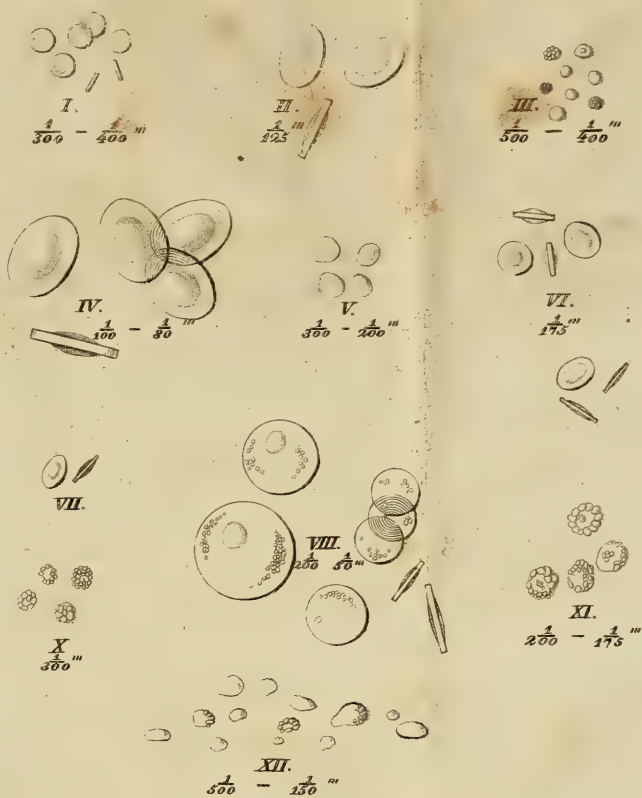 I.
1/300 — 1/400 '''
II.
1/125 '''
III.
1/500 — 1/400 '''
IV.
1/100 — 1/80 '''
V.
1/300 — 1/200 '''
VI.
1/175 '''
VII.
VIII.
1/200 1/50 '''
X
1/300 '''
XI.
1/200 — 1/175 '''
XII.
1/500 — 1/150 '''